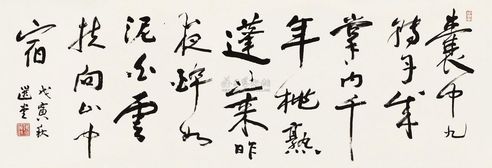 囊中九
轉丹成
掌内千
年桃熟
蓬萊昨
夜醉如
泥白雲
扶向山中
宿
戊寅秋
選堂